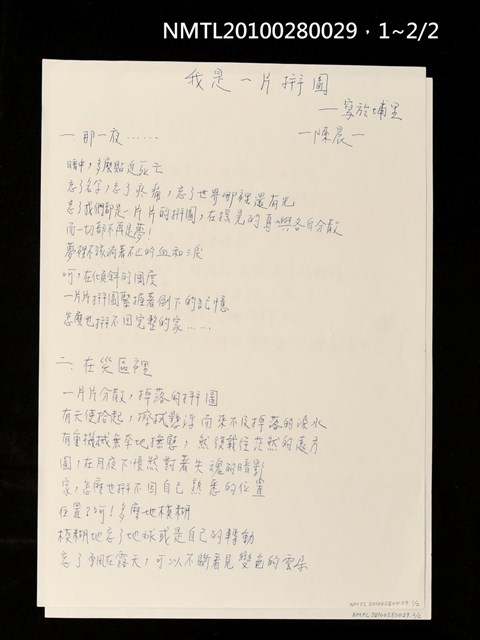 NMTL20100280029，1~2/2
我是一片拼圖
—寫於埔里
—陳晨—
一 那一夜……
暗中，多麼貼近死亡
忘了名字，忘了疼痛，忘了世界哪裡還有光
忘了我們都是一片片的拼圖，在搖晃的 各自分散
而一切都不再是夢！
夢裡不該淌著 的血和淚
呵，在傾斜的國度
一片片拼圖緊擁著倒下的記憶
怎麼也拼不回完整的家……
二、在災區裡
一片片分散，掉落的拼圖
有天使拾起，擦拭懸浮而來不及掉落的淚水
有重機械無奈地撫慰，然後載往茫然的遠方
圓，在月夜下悵然對著失魂的暗影
家，怎麼也拼不回自己熟悉的位置
位置了呵！多麼地模糊
模糊地忘了地球或是自己的轉動
忘了 在露天，可以不斷看見變色的雲朵
NMTL20100280029 1/2
NMTL20100280029 2/2